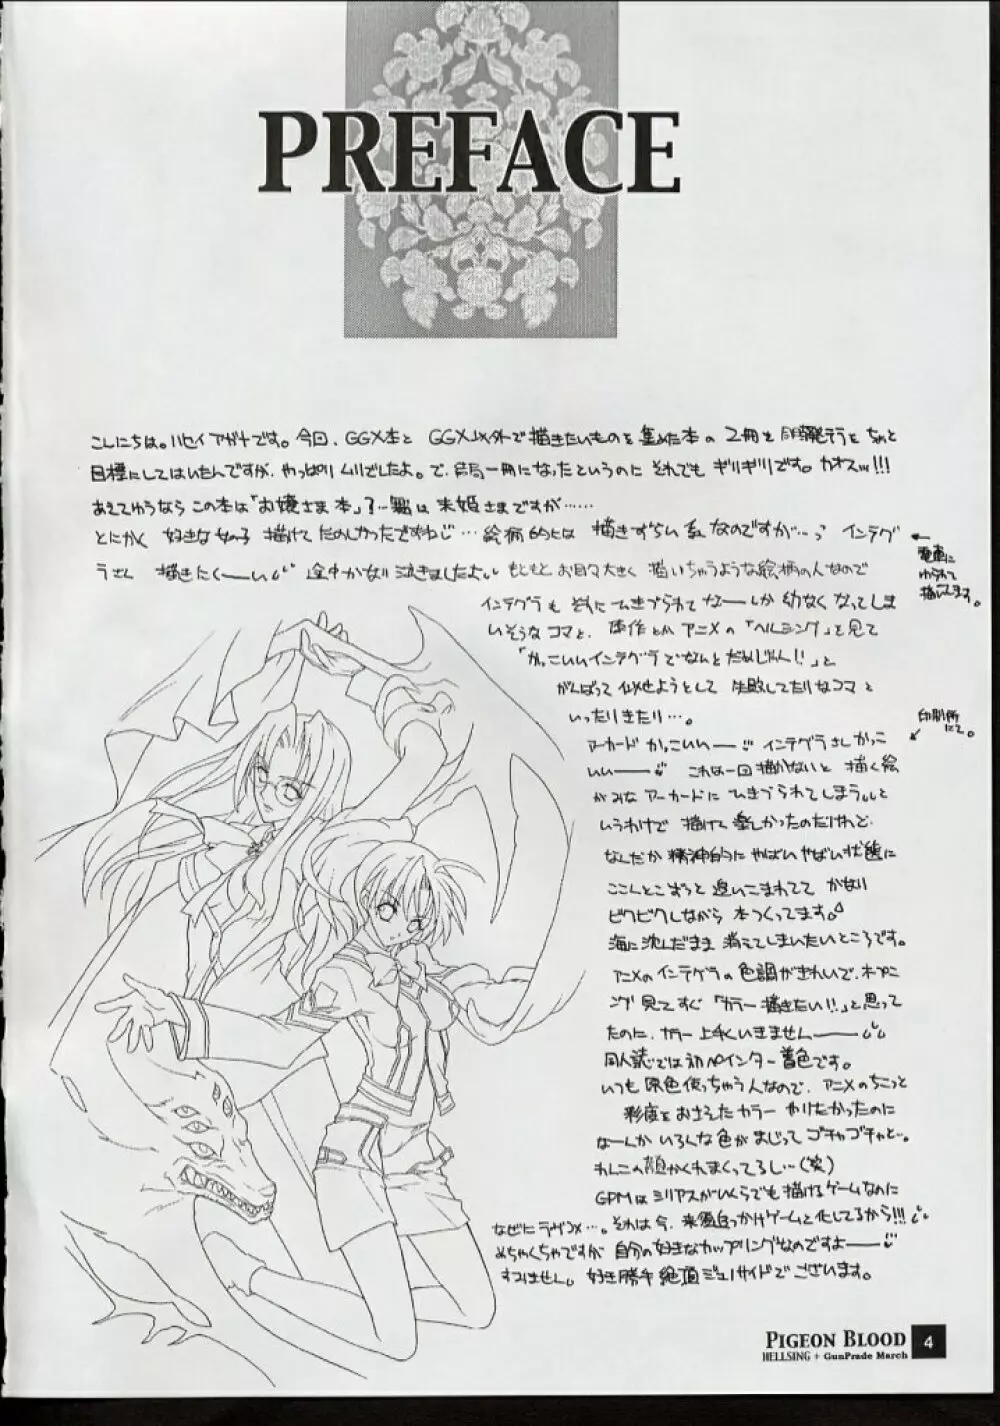 PREFACE
こんにちは。ハセイアガナです。今回、GGX本と GGX以外で描きたいものを集めた本の 2冊を
目標にしてはいたんですが、やっぱりムリでしたよ。で、結局一冊になったというのに それでも ギリギリです。カオスッ!!!
あえてゆうなら この本は「お嬢さま本」
とにかく 好きな女の子 描けて たのしかったですねじ… 絵柄的には 描きずらい系なのですが…っ インテグ
ラさん 描きたくーい 途中かなり泣きましたよ もともと お目々大きく 描いちゃうような絵柄の人なので
電車に
ゆられて
描いてます。
インテグラも それに ひきづられて なーんか 幼なくなってしま
いそうなコマと、原作とか アニメの「ヘルシング」を見て
「かっこいいインテグラでなんとだめじゃん!!」と
がんばって 似せようとして 失敗してたりなコマと
いったりきたり…。
印刷所
にて。
アーカード かっこいいー インテグラさんかっこ
いいー これは一回描かないと 描く絵
がみな アーカードに ひきづられてしまう と
いうわけで 描けて 楽しかったのだけれど
なんだか 精神的に やばい やばい状態に
ここんとこずっと 追いこまれてて かなり
ビクビクしながら 本つくってます。
海に沈んだまま 消えてしまいたいところです。
アニメの インテグラの 色調がきれいで、オープニ
ング見てすぐ「カラー描きたい!!」と思って
たのに、カラー上手くいきませんー
同人誌では初ペインター着色です。
いつも 原色使っちゃう人なので、アニメのちょっと
彩度を おさえたカラー やりたかったのに
なーんか いろんな色が まじって ゴチャゴチャと…。
わんこの顔かくれまくってるし…(笑)
GPMは シリアスがいくらでも描けるゲームなのに
なぜにラヴコメ…。それは今、来須追っかけゲームと化してるから!!!
めちゃくちゃですが 自分の好きなカップリングなのですよー
すいません。 好き勝手 絶頂 ジェノサイドでございます。
PIGEON BLOOD
HELLSING + GunPrade March
4